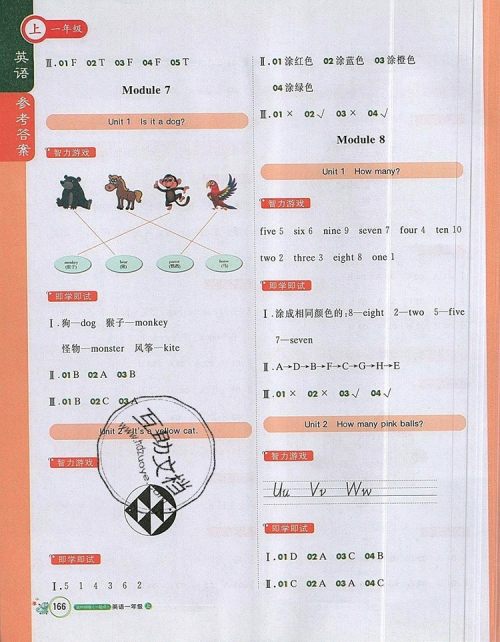 上 一年级
英语
参考答案
Ⅱ.01 F 02 T 03 F 04 F 05 T
Module 7
Unit 1 Is it a dog?
智力游戏
monkey (猴子) bear (熊) parrot (鹦鹉) horse (马)
即学即试
Ⅰ.狗—dog 猴子—monkey
怪物—monster 风筝—kite
Ⅱ.01 B 02 A 03 B
Ⅲ.01 B 02 C 03 A
Unit 2 It's a yellow cat.
智力游戏
即学即试
Ⅰ.5 1 4 3 6 2
166 英语一年级 上
Ⅱ.01 涂红色 02 涂蓝色 03 涂橙色
04 涂绿色
Ⅲ.01 × 02 √ 03 × 04 √
Module 8
Unit 1 How many?
智力游戏
five 5 six 6 nine 9 seven 7 four 4 ten 10
two 2 three 3 eight 8 one 1
即学即试
Ⅰ.涂成相同颜色的:8—eight 2—two 5—five
7—seven
Ⅱ.A→D→B→F→C→G→H→E
Ⅲ.01 × 02 × 03 √ 04 √
Unit 2 How many pink balls?
智力游戏
Uu Vv Ww
即学即试
Ⅰ.01 D 02 A 03 C 04 B
Ⅱ.01 C 02 A 03 A 04 C
互助文档